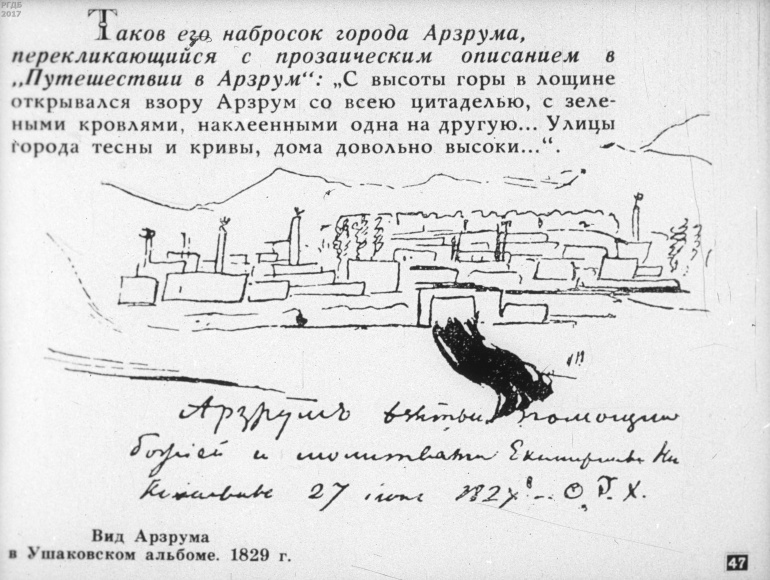 РГДБ
2017
Таков его набросок города Арзрума,
перекликающийся с прозаическим описанием в
„Путешествии в Арзрум“: „С высоты горы в лощине
открывался взору Арзрум со всею цитаделью, с зеле-
ными кровлями, наклеенными одна на другую... Улицы
города тесны и кривы, дома довольно высоки...“.
Арзрумъ взятый помощию
божіей и молитвами Екатерины Ни
27 іюня О. Р. Х.
Вид Арзрума
в Ушаковском альбоме. 1829 г.
47